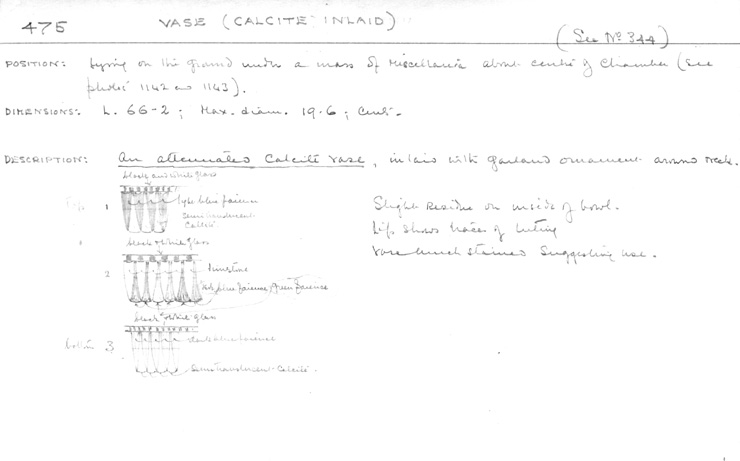 475
VASE (CALCITE INLAID)
(See No. 344)
POSITION: Lying on the ground under a mass of miscellania about centre of Chamber (See
photos 1142 and 1143).
DIMENSIONS: L. 66-2; Max. diam. 19.6; Cent.
DESCRIPTION: An attenuated Calcite vase, inlaid with garland ornament around neck.
black and white glass
Top 1 light blue faience
Semi translucent
Calcite.
Slight residue on inside of bowl.
Lip shows traces of luting
Vase much stained suggesting use.
black & white glass
2 limestone
blue faience, green faience
black & white glass
bottom 3 dark blue faience
Semi translucent Calcite.